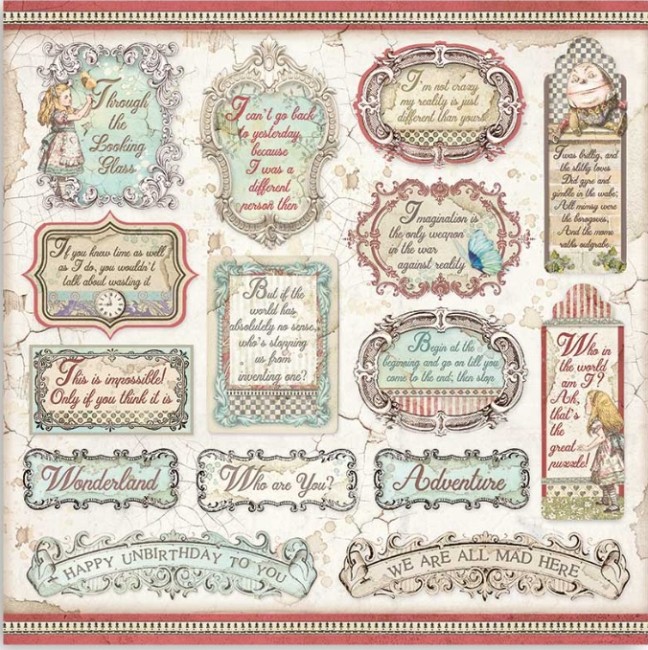 Through
the
Looking
Glass
I can't go back
to yesterday,
because
I was a
different
person then
I'm not crazy
my reality is just
different than yours.
Twas brillig, and
the slithy toves
Did gyre and
gimble in the wabe;
All mimsy were
the borogoves,
And the mome
raths outgrabe.
If you knew time as well
as I do, you wouldn't
talk about wasting it
Imagination is
the only weapon
in the war
against reality
But if the
world has
absolutely no sense,
who's stopping
us from
inventing one?
This is impossible!
Only if you think it is
Begin at the
beginning and go on till you
come to the end; then stop
Who in
the world
am I?
Ah,
that's
the
great
puzzle!
Wonderland
Who are You?
Adventure
HAPPY UNBIRTHDAY TO YOU
WE ARE ALL MAD HERE